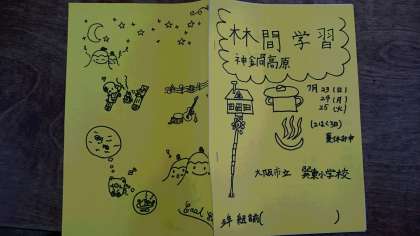 林間学習
神鍋高原
7月23(日)
24(月)
25(火)
(2はく3日)
夏休み中
大阪市立 巽東小学校
5年 組 名前(      )